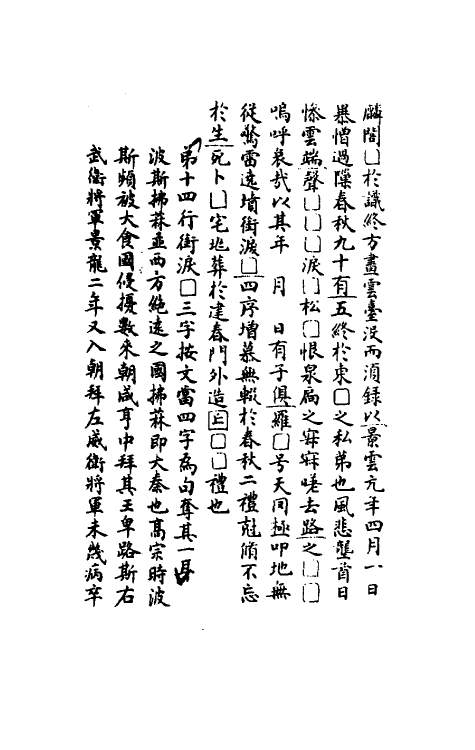 麟閣□於識終方畫雲臺沒而湏錄以景雲元年四月一日
暴憎過隟春秋九十有五終於東□之私第也風悲壟首日
慘雲端聲□□□淚□松□恨泉扃之寐寐嗟去路之□□
嗚呼哀哉以其年　月　日有子俱羅□号天罔極叩地無
從驚雷遶墳銜淚□四序增慕無輟於春秋二禮剋脩不忘
於生死卜□宅地葬於建春門外造㔷□□禮也
弟十四行銜淚□三字按文當四字為句奪其一耳
波斯拂菻並西方絕遠之國拂菻即大秦也高宗時波
斯頻被大食國侵擾數來朝咸亨中拜其王卑路斯右
武衛將軍景龍二年又入朝拜左威衛將軍未幾病卒